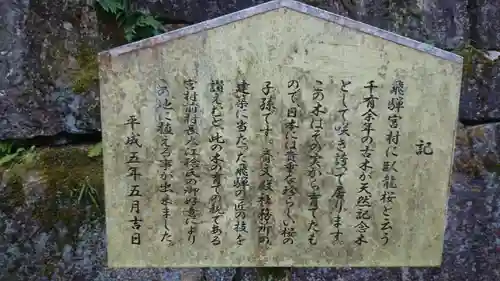 記
飛騨宮村に臥龍桜と云う
千有余年の古木が天然記念木
として咲き誇って居ります。
この木はその実から育てたも
ので日本では貴重な珍らしい桜の
子孫です。
建築に当たった飛騨の匠の技を
讃えんと、此の木の育ての親である
宮村前村長
の御好意により
この地に植える事が出来ました。
平成五年五月吉日